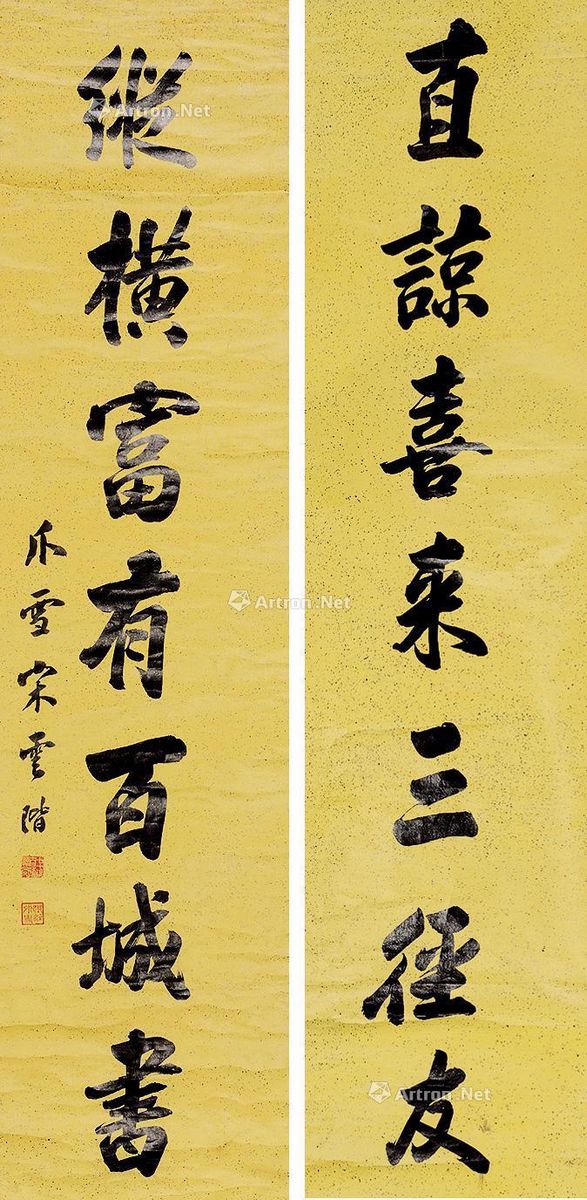 直諒喜来三徑友
縱橫富有百城書
爪雪宋雲階
Artron.Net
Artron.Net
Artron.Net
Artron.Net